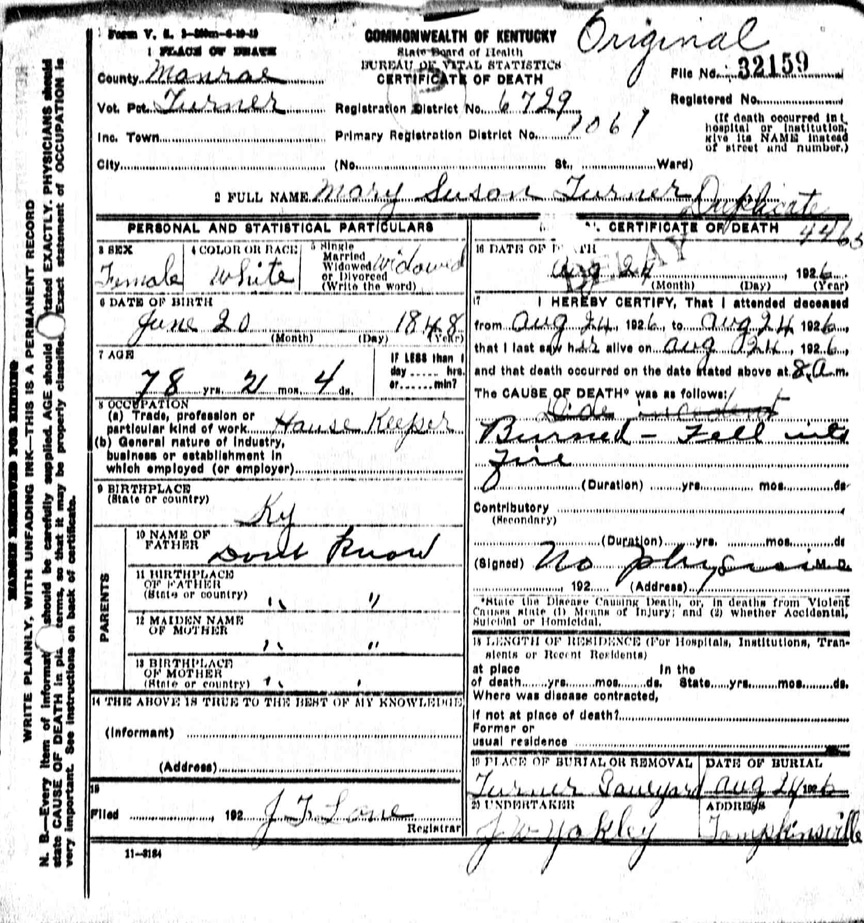 Form V. S. 1
1 PLACE OF DEATH
COMMONWEALTH OF KENTUCKY
State Board of Health
BUREAU OF VITAL STATISTICS
CERTIFICATE OF DEATH
Original
File No. 32159
Registered No.
(If death occurred in
hospital or institution,
give its NAME instead
of street and number.)
County Monroe
Vot. Pct. Turner
Registration District No. 6729
Inc. Town
Primary Registration District No. 7061
City (No. St., Ward)
2 FULL NAME Mary Suson Turner
Duplicate
4463
PERSONAL AND STATISTICAL PARTICULARS
3 SEX
Female
4 COLOR OR RACE
White
5 Single
Married
Widowed
or Divorced
(Write the word)
Widowed
6 DATE OF BIRTH
June 20 1848
(Month) (Day) (Year)
7 AGE
78 yrs. 2 mos. 4 ds.
IF LESS than 1
day hrs.
or min?
8 OCCUPATION
(a) Trade, profession or
particular kind of work House Keeper
(b) General nature of industry,
business or establishment in
which employed (or employer)
9 BIRTHPLACE
(State or country)
Ky
PARENTS
10 NAME OF
FATHER Dont Know
11 BIRTHPLACE
OF FATHER
(State or country) " "
12 MAIDEN NAME
OF MOTHER " "
13 BIRTHPLACE
OF MOTHER
(State or country) " "
14 THE ABOVE IS TRUE TO THE BEST OF MY KNOWLEDGE
(Informant)
(Address)
15
Filed , 192 J T Lane
Registrar
11-3184
CERTIFICATE OF DEATH
DELAY
16 DATE OF DEATH
Aug 24 1926
(Month) (Day) (Year)
17 I HEREBY CERTIFY, That I attended deceased
from Aug 24, 1926, to Aug 24 1926
that I last saw her alive on Aug 24, 1926,
and that death occurred on the date stated above at 8 a m.
The CAUSE OF DEATH* was as follows:
Burned - Fell into
Fire
(Duration) yrs. mos. ds
Contributory
(Secondary)
(Duration) yrs. mos. ds
(Signed) No physician M. D.
, 192 (Address)
*State the Disease Causing Death, or, in deaths from Violent
Causes state (1) Means of Injury; and (2) whether Accidental,
Suicidal or Homicidal.
18 LENGTH OF RESIDENCE (For Hospitals, Institutions, Tran-
sients or Recent Residents)
at place In the
of death yrs. mos. ds. State yrs. mos. ds.
Where was disease contracted,
if not at place of death?
Former or
usual residence
19 PLACE OF BURIAL OR REMOVAL
Turner Graveyard
DATE OF BURIAL
Aug 24 1926
20 UNDERTAKER
J W Yokley
ADDRESS
Tompkinsville
MARGIN RESERVED FOR BINDING
WRITE PLAINLY, WITH UNFADING INK—THIS IS A PERMANENT RECORD
N. B.—Every item of information should be carefully supplied. AGE should be stated EXACTLY. PHYSICIANS should
state CAUSE OF DEATH in plain terms, so that it may be properly classified. Exact statement of OCCUPATION is
very important. See instructions on back of certificate.